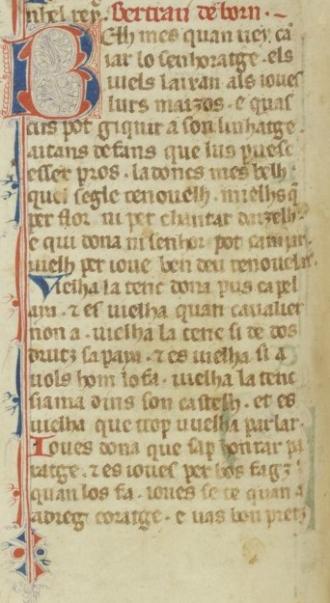 nhel rey. Bertran de born.
Belh mes quan vei ca
iar lo senhoratge · els
uiels laixan als ioues
lurs maizos · e quas
cus pot giquir a son linhatge
aitans defans que lus puesc
esser pros · ladoncs mes belh
quel segle renouelh · mielhs q̃
per flor ni per chantar dauzelh ·
e qui dona ni senhor pot camiar
uielh per ioue ben deu renouelar
Vielha la tenc dona pus capel
am · ⁊ es uielha quan caualier
non a · uielha la tenc si de dos
drutz sa paia · ⁊ es uielha si a
uols hom lo fa · uielha la tenc
si ama dins son castelh · et es
uielha que trop uuelha parlar ·
Ioues dona que sap honrar pa
ratge · ⁊ es ioues per bos fagz ·
quan los fa · ioues se te quan a
adreg coratge · e uas bon pretz